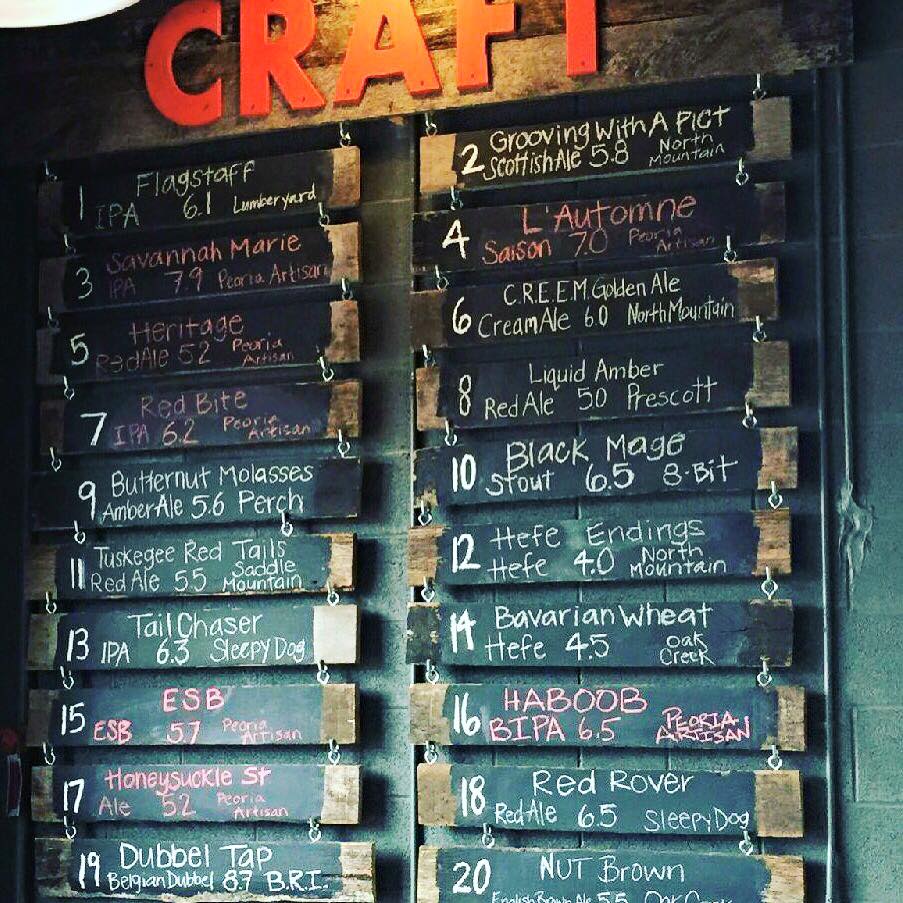 CRAFT
1 Flagstaff
IPA 6.1 Lumberyard
2 Grooving With A PICT
Scottish Ale 5.8 North Mountain
3 Savannah Marie
IPA 7.9 Peoria Artisan
4 L'Automne
Saison 7.0 Peoria Artisan
5 Heritage
Red Ale 5.2 Peoria Artisan
6 C.R.E.E.M. Golden Ale
Cream Ale 6.0 North Mountain
7 Red Bite
IPA 6.2 Peoria Artisan
8 Liquid Amber
Red Ale 5.0 Prescott
9 Butternut Molasses
Amber Ale 5.6 Perch
10 Black Mage
Stout 6.5 8-Bit
11 Tuskegee Red Tails
Red Ale 5.5 Saddle Mountain
12 Hefe Endings
Hefe 4.0 North Mountain
13 Tail Chaser
IPA 6.3 Sleepy Dog
14 Bavarian Wheat
Hefe 4.5 Oak Creek
15 ESB
ESB 5.7 Peoria Artisan
16 HABOOB
BIPA 6.5 PEORIA ARTISAN
17 Honeysuckle St
Ale 5.2 Peoria Artisan
18 Red Rover
Red Ale 6.5 Sleepy Dog
19 Dubbel Tap
Belgian Dubbel 8.7 B.R.I.
20 NUT Brown
English Brown Ale 5.5 Oak Creek